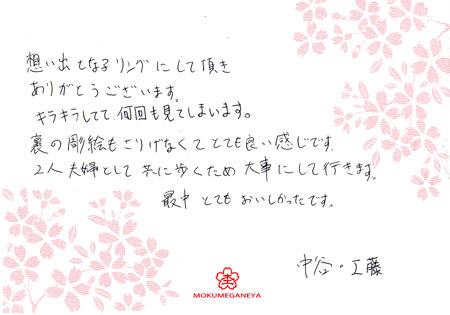 想い出となるリングにして頂き
ありがとうございます。
キラキラしてて、何回も見てしまいます。
裏の彫絵もさりげなくてとても良い感じです。
2人夫婦として共に歩くため大事にして行きます。
最中とてもおいしかったです。
中谷・工藤
MOKUMEGANEYA